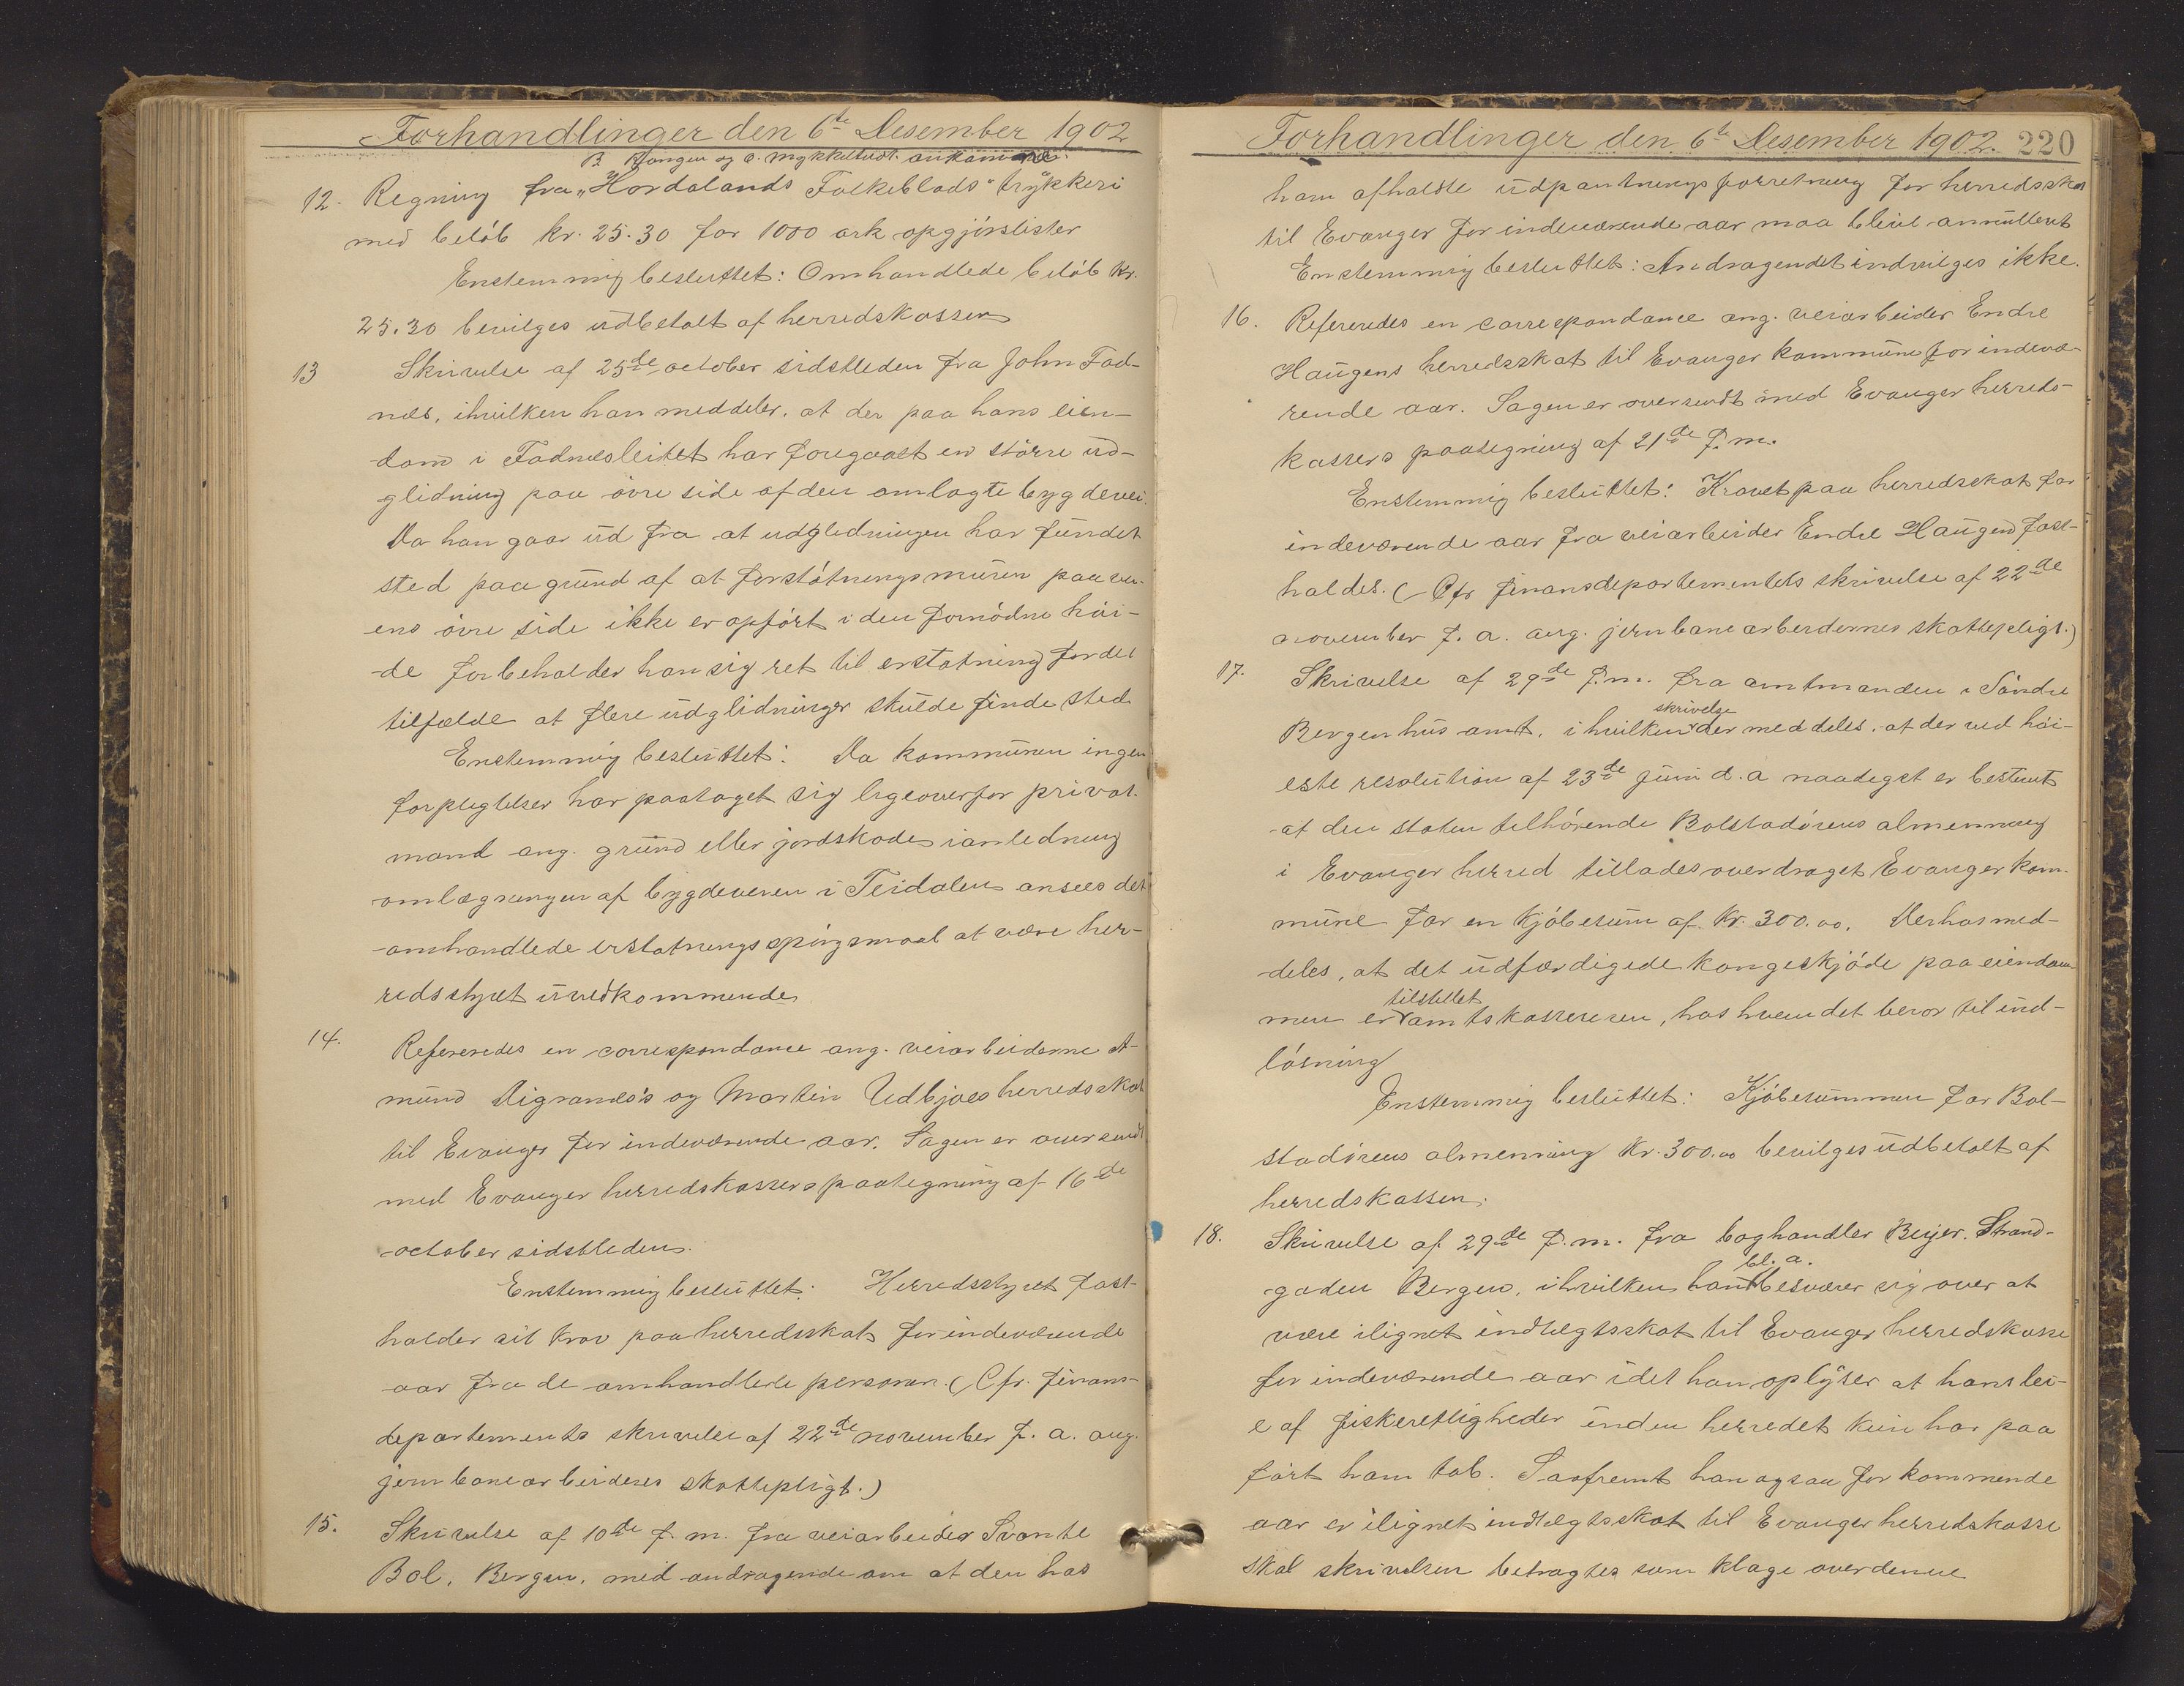 Forhandlinger den 6te Desember 1902
B. Vangen og O. Mykkeltvedt ankom nu.
12. Regning fra „Hordalands Folkeblads" trykkeri
med beløb kr. 25.30 for 1000 ark opgjørslister
Enstemmig besluttet: Omhandlede beløb kr.
25.30 bevilges udbetalt af herredskassen
13 Skrivelse af 25de october sidstleden fra John Fad-
næs, ihvilken han meddeler, at der paa hans eien-
dom i Fadnesleitet har foregaaet en större ud-
glidning paa øvre side af den omlagte bygdevei.
Da han gaar ud fra at udglidningen har fundet
sted paa grund af at forstøtningsmuren paa vei-
ens øvre side ikke er opført i den fornødne høi-
de forbeholder han sig ret til erstatning for det
tilfælde at flere udglidninger skulde finde sted
Enstemmig besluttet: Da kommunen ingen
forpligtelser har paataget sig ligeoverfor privat-
mand ang. grund eller jordskade ianledning
omlægningen af bygdeveien i Teidalen ansees det
omhandlede erstatningsspørgsmaal at være her-
redsstyret uvedkommende
14. Refereredes en correspondance ang. veiarbeiderne A-
mund Digranes's og Martin Udbjoes herredsskat
til Evanger for indeværende aar. Sagen er oversendt
med Evanger herredskassers paategning af 16de
october sidstleden.
Enstemmig besluttet: Herredsstyret fast-
holder sit krav paa herredsskat for indeværende
aar fra de omhandlede personer. (Cfr. finans-
departements skrivelse af 22de november f. a. ang.
jernbanearbeideres skattepligt.)
15. Skrivelse af 10de f. m. fra veiarbeider Svante
Bol, Bergen, med andragende om at den hos
Forhandlinger den 6te Desember 1902. 220
ham afholdte udpantningsforretning for herredsskat
til Evanger for indeværende aar maa blive annulleret
Enstemmig besluttet: Andragendet indvilges ikke.
16. Refereredes en correspondance ang. veiarbeider Endre
Haugens herredsskat til Evanger kommune for indevæ-
rende aar. Sagen er oversendt med Evanger herreds-
kassers paategning af 21de f. m.
Enstemmig besluttet: Kravet paa herredsskat for
indeværende aar fra veiarbeider Endre Haugen fast-
holdes. (Cfr finansdepartementets skrivelse af 22de
november f. a. ang. jernbanearbeidernes skattepligt.)
17. Skrivelse af 29de f. m. fra amtmanden i Søndre
skrivelse
Bergenhus amt, i hvilken der meddeles, at der ved høi-
este resolution af 23de juni d. a naadigst er bestemt
at den staten tilhørende Bolstadørens almenning
i Evanger herred tillades overdraget Evanger kom-
mune for en kjøbesum af Kr. 300.00. Derhos med-
deles, at det udfærdigede kongeskjøde paa eiendom
tilstillet
men er amtskassereren, hos hvem det beror til ind-
løsning
Enstemmig besluttet: Kjøbesummen for Bol-
stadørens almenning Kr. 300.00 bevilges udbetalt af
herredskassen.
18. Skrivelse af 29de f. m. fra boghandler Beyer, Strand-
bl. a.
gaden Bergen, ihvilken han besværer sig over at
være ilignet indtægtsskat til Evanger herredskasse
for indeværende aar idet han oplyser at hans lei-
e af fiskerettigheder inden herredet kun har paa
ført ham tab. Saafremt han ogsaa for kommende
aar er ilignet indtægtsskat til Evanger herredskasse
skal skrivelsen betragtes som klage over denne